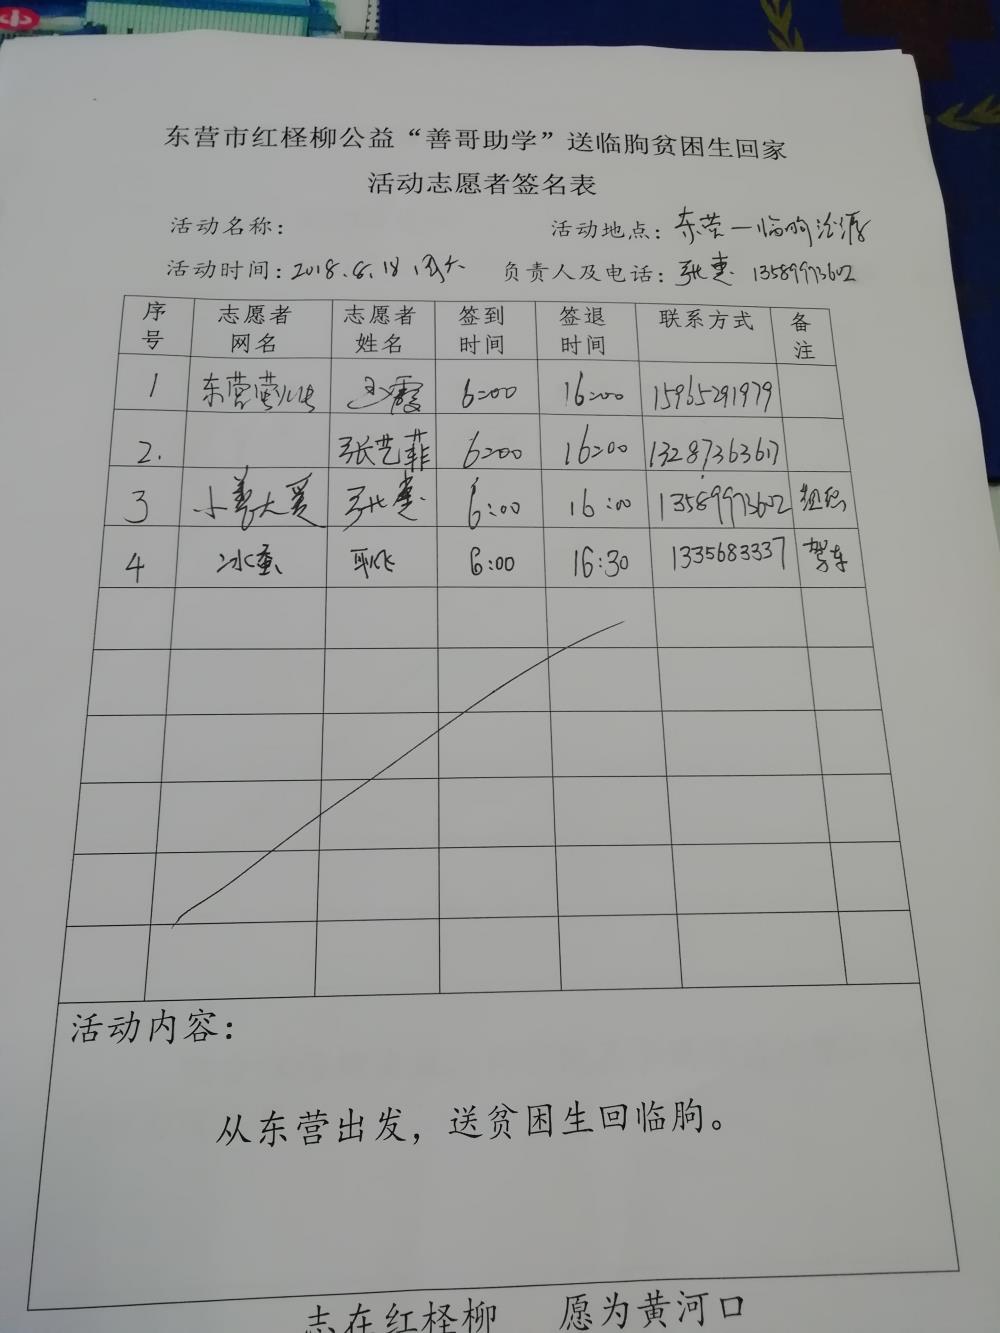 小
东营市红柽柳公益“善哥助学”送临朐贫困生回家
活动志愿者签名表
活动名称： 活动地点：东营—临朐
活动时间：2018.6.18 负责人及电话：张惠 13589973602
序号 志愿者网名 志愿者姓名 签到时间 签退时间 联系方式 备注
1 东营 王霞 6:00 16:00 15965291979
2. 张艺菲 6:00 16:00 13287363617
3 小善大爱 张惠 6:00 16:00 13589973602 组织
4 冰蚕 6:00 16:30 1335683337 驾车
活动内容：
从东营出发，送贫困生回临朐。
志在红柽柳 愿为黄河口